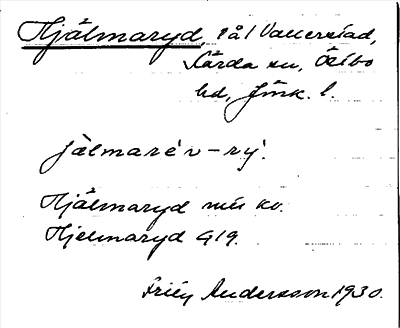 Hjälmaryd, i ål Vallerstad,
Kärda sn, Östbo
hd, Jönk. l.
jälmaré'n – rý.
Hjälmaryd
Hjelmaryd G19.
Andersson 1930.